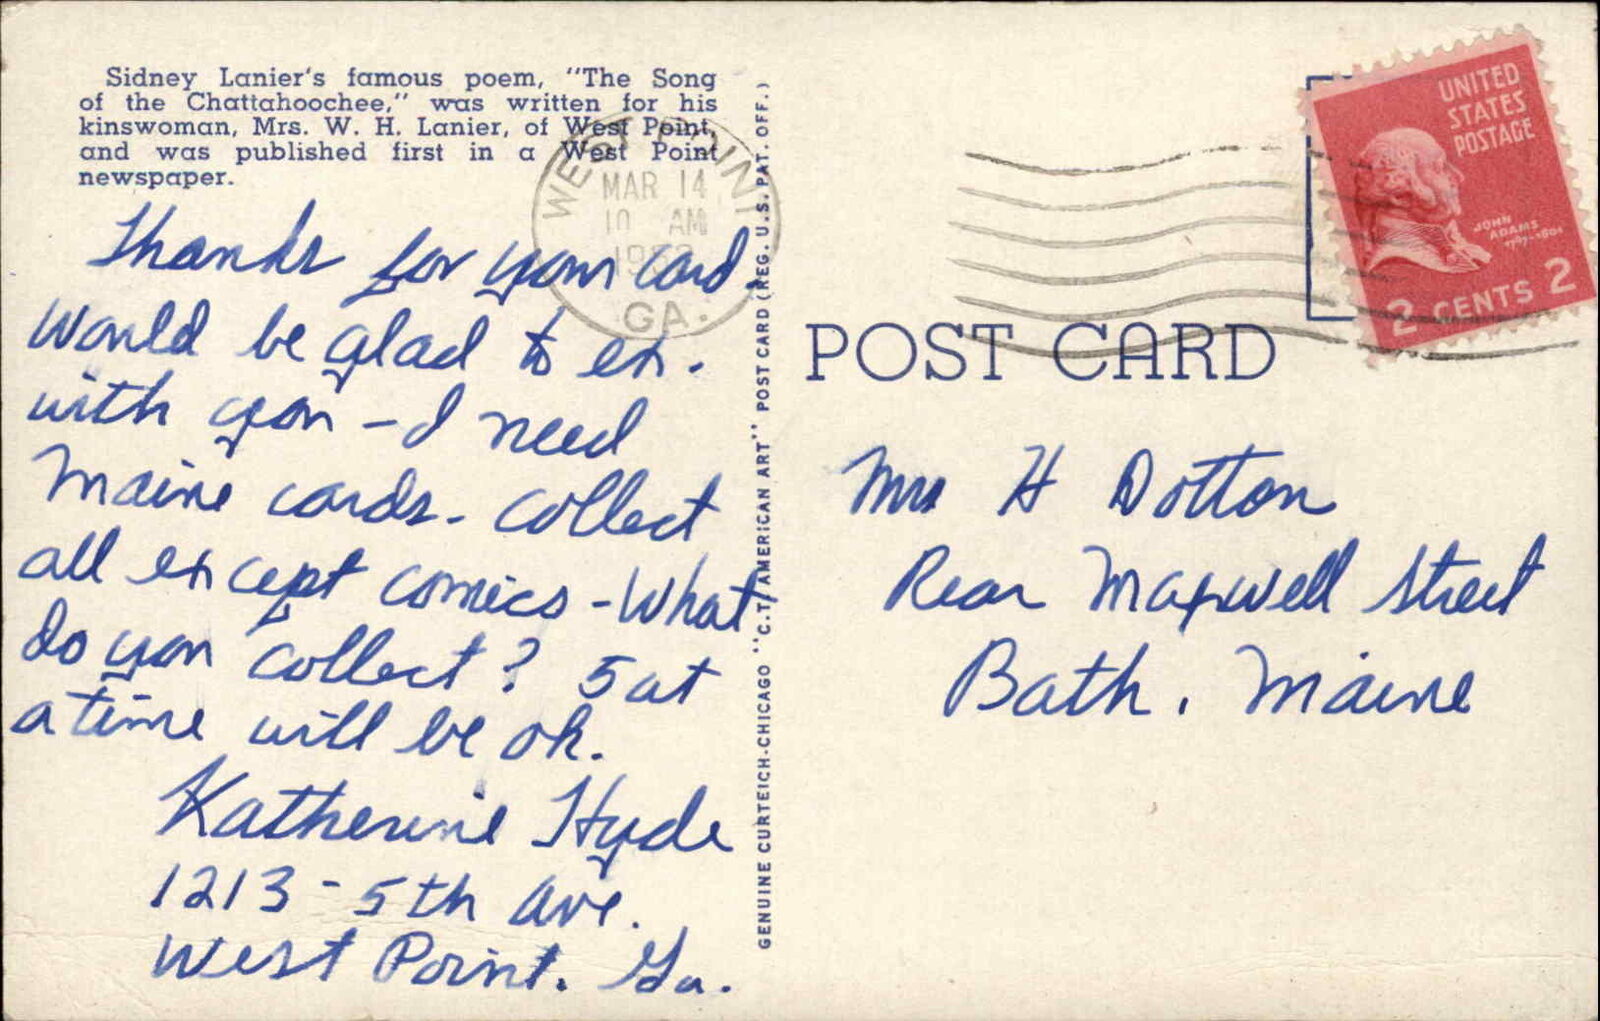 Sidney Lanier's famous poem, "The Song
of the Chattahoochee," was written for his
kinswoman, Mrs. W. H. Lanier, of West Point,
and was published first in a West Point
newspaper.
WEST POINT
MAR 14
10 AM
GA.
Thanks for your card.
Would be glad to ex.
with you - I need
Maine cards. Collect
all except comics - What
do you collect? 5 at
a time will be ok.
Katherine Hyde
1213 - 5th Ave.
West Point. Ga.
GENUINE CURTEICH-CHICAGO "C.T. AMERICAN ART" POST CARD (REG. U.S. PAT. OFF.)
UNITED
STATES
POSTAGE
JOHN
ADAMS
1797-1801
2 CENTS 2
POST CARD
Mrs H Dotton
Rear Maxwell Street
Bath, Maine